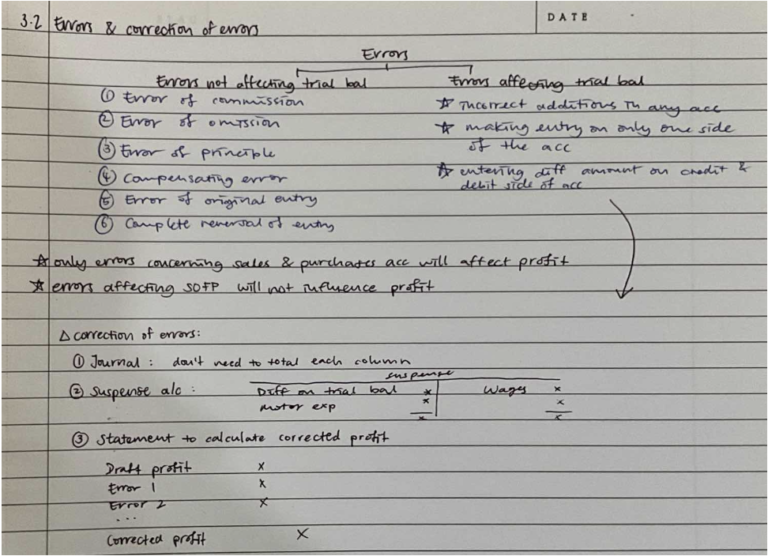 3.2 Errors & correction of errors
DATE
Errors
Errors not affecting trial bal
Errors affecting trial bal
① Error of commission
② Error of omission
③ Error of principle
④ Compensating error
⑤ Error of original entry
⑥ Complete reversal of entry
☆ incorrect additions in any acc
☆ making entry on only one side
of the acc
☆ entering diff amount on credit &
debit side of acc
☆ only errors concerning sales & purchases acc will affect profit
☆ errors affecting SOFP will not influence profit
△ correction of errors:
① Journal : don't need to total each column
suspense
② Suspense a/c : Diff on trial bal x Wages x
motor exp x x
x x
③ Statement to calculate corrected profit
Draft profit x
Error 1 x
Error 2 x
...
Corrected profit x